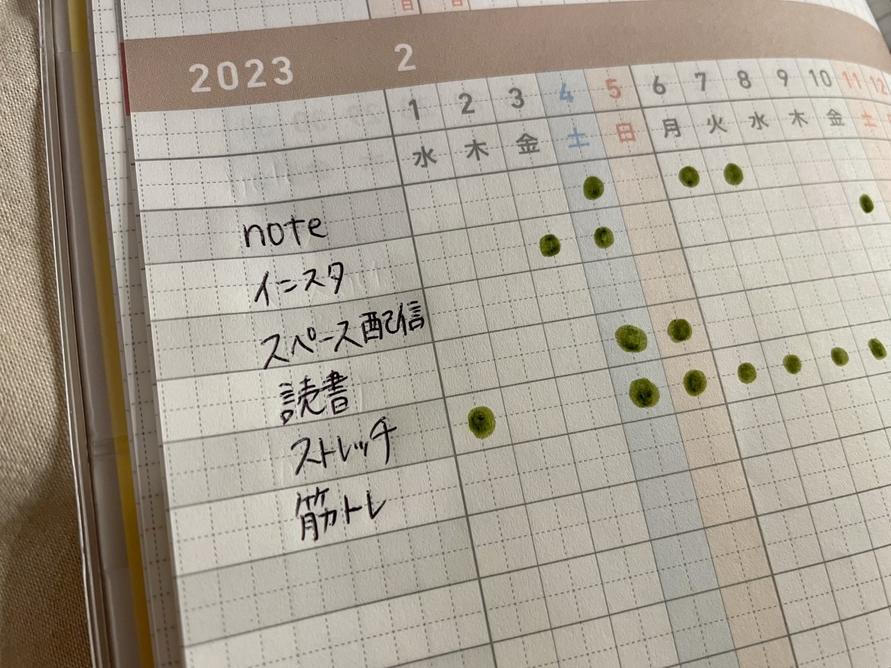 日 日
2023 2
1 2 3 4 5 6 7 8 9 10 11 12
水 木 金 土 日 月 火 水 木 金 土
note
インスタ
スペース配信
読書
ストレッチ
筋トレ